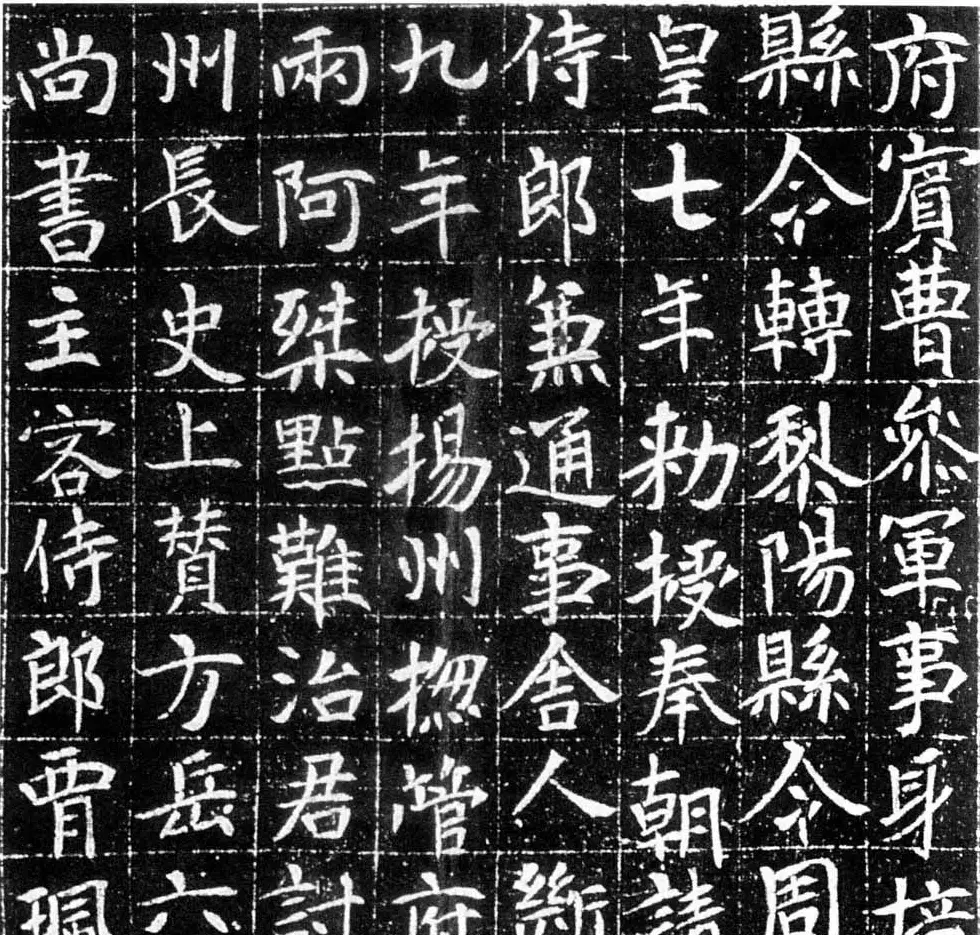 府賓曹參軍事身
縣令轉黎陽縣令周
皇七年勑授奉朝請
侍郎兼通事舍人
九年授揚州揔管府
兩阿桀點難治君討
州長史上贊方岳六
尚書主客侍郎胥珮